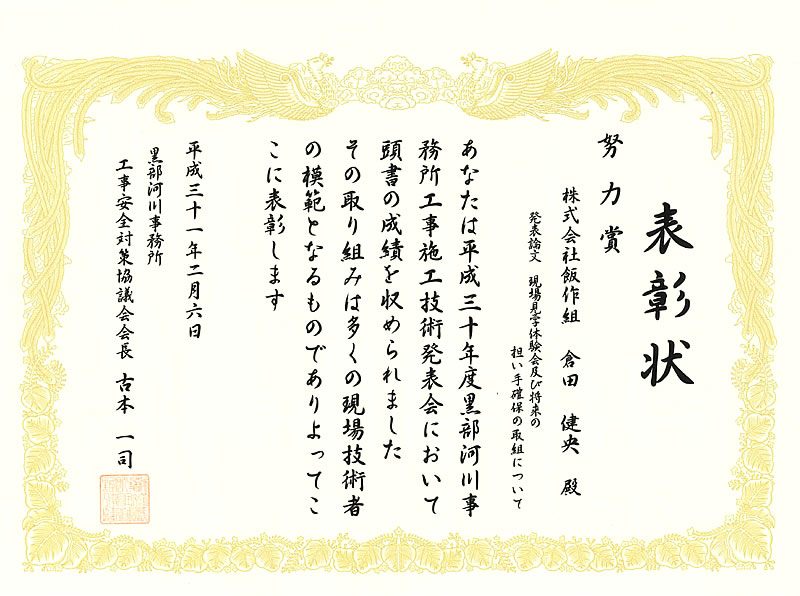 表彰状
努力賞
株式会社飯作組 倉田 健央 殿
発表論文 現場見学体験会及び将来の
担い手確保の取組について
あなたは平成三十年度黒部河川事
務所工事施工技術発表会において
頭書の成績を収められました
その取り組みは多くの現場技術者
の模範となるものでありよってこ
こに表彰します
平成三十一年二月六日
黒部河川事務所
工事安全対策協議会会長 古本 一司